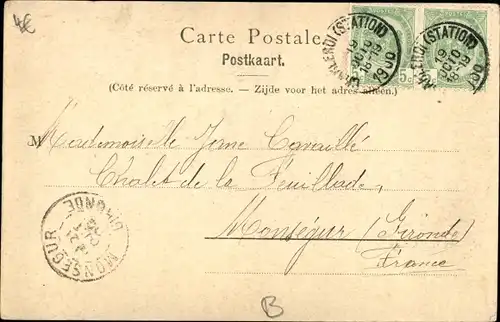 4€
Carte Postale
Postkaart.
(Côté réservé à l'adresse. — Zijde voor het adres alleen.)
CHARLEROI (STATION)
19
OCT
18-19
1900
5c
CHARLEROI (STATION)
19
OCT
18-19
1900
Mademoiselle Jane Cavaillé
Chalet de la Feuillade,
Monségur (Gironde)
France
MONSEGUR
GIRONDE
B